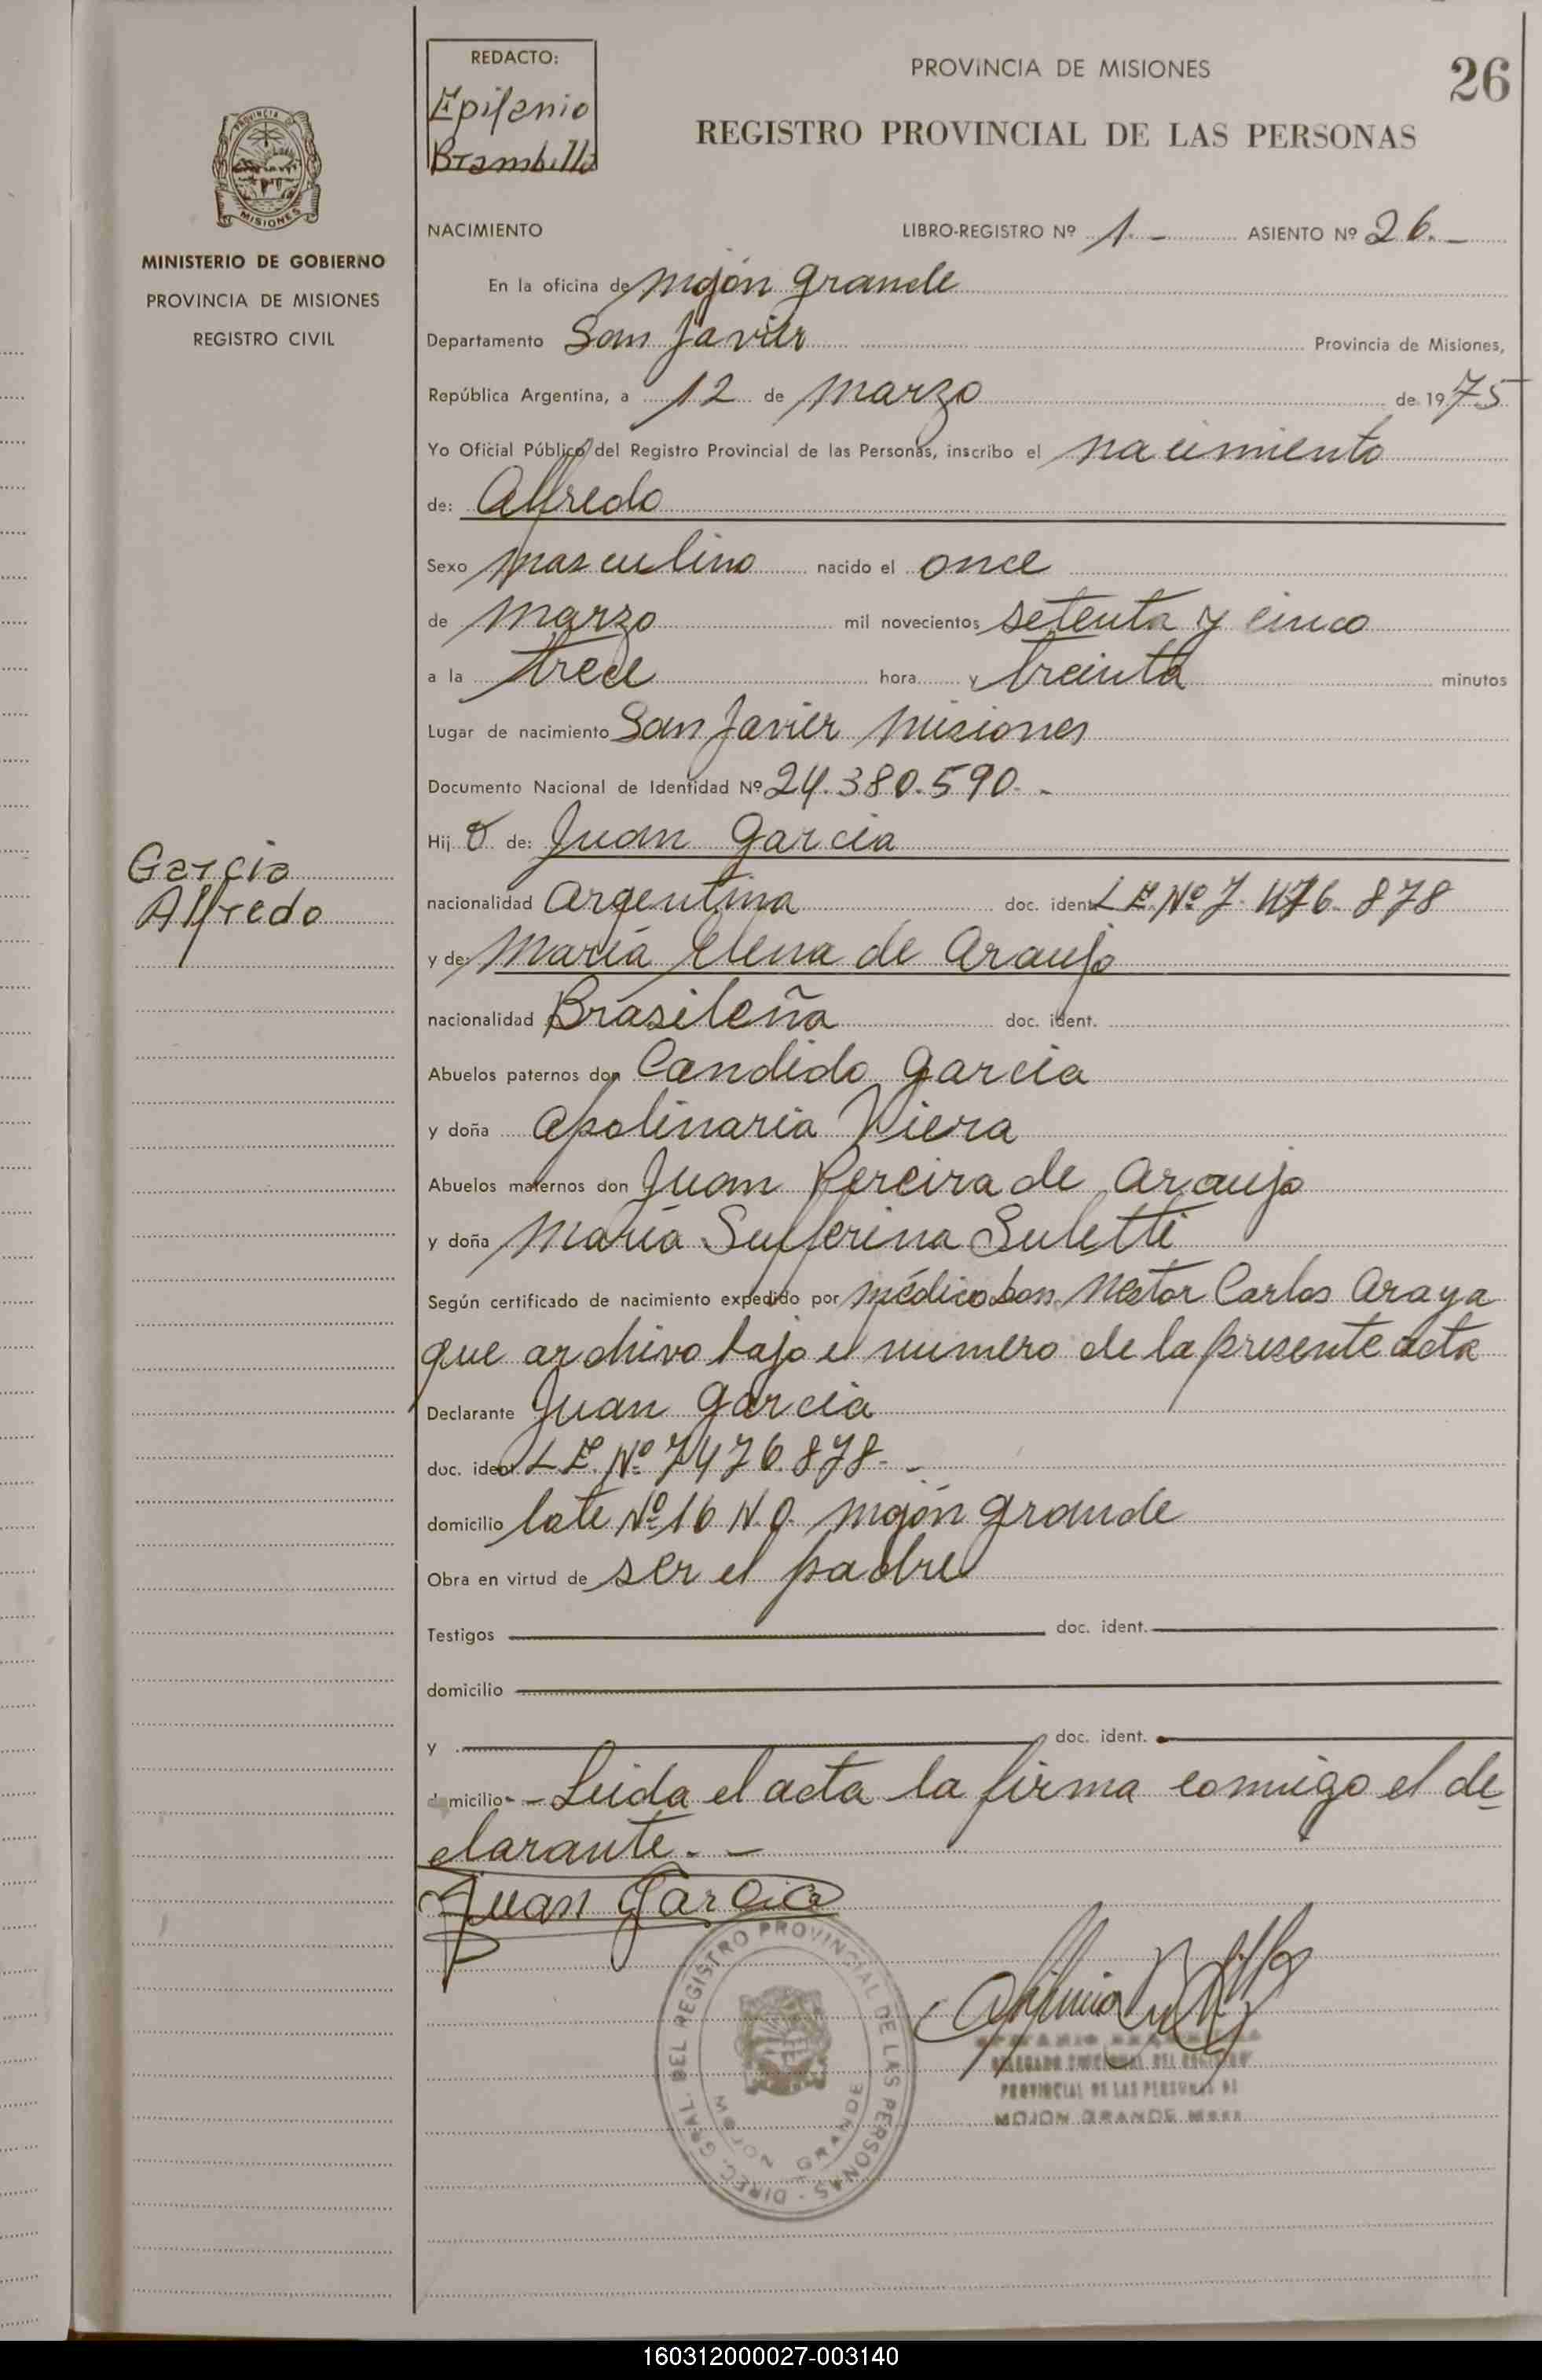 REDACTO:
Epifanio
Brambilla
PROVINCIA DE MISIONES
26
REGISTRO PROVINCIAL DE LAS PERSONAS
PROVINCIA DE
MISIONES
MINISTERIO DE GOBIERNO
PROVINCIA DE MISIONES
REGISTRO CIVIL
NACIMIENTO LIBRO-REGISTRO Nº 1.- ASIENTO Nº 26.-
En la oficina de Mojón grande
Departamento San Javier Provincia de Misiones,
República Argentina, a 12 de Marzo de 1975
Yo Oficial Público del Registro Provincial de las Personas, inscribo el nacimiento
de: Alfredo
Sexo masculino nacido el once
de Marzo mil novecientos setenta y cinco
a la trece hora y treinta minutos
Lugar de nacimiento San Javier Misiones
Documento Nacional de Identidad Nº 24.380.590.-
Hij o de: Juan Garcia
Garcia
Alfredo
nacionalidad Argentina doc. ident. L E. Nº 7.476.878
y de: María Elena de Araujo
nacionalidad Brasileña doc. ident.
Abuelos paternos don Candido Garcia
y doña Apolinaria Viera
Abuelos maternos don Juan Pereira de Araujo
y doña María Sufferina Suletti
Según certificado de nacimiento expedido por médico don Nestor Carlos Araya
que archivo bajo el numero de la presente acta
Declarante Juan Garcia
doc. ident. L E. Nº 7476.878.-
domicilio lote Nº 16 N.O. Mojón grande
Obra en virtud de ser el padre
Testigos doc. ident.
domicilio
y doc. ident.
domicilio - Leida el acta la firma comnigo el de-
clarante.-
Juan Garcia
DIREC. GRAL. DEL REGISTRO PROVINCIAL DE LAS PERSONAS -
MOJON GRANDE
PROVINCIAL DE LAS PERSONAS DE
MOJON GRANDE
160312000027-003140